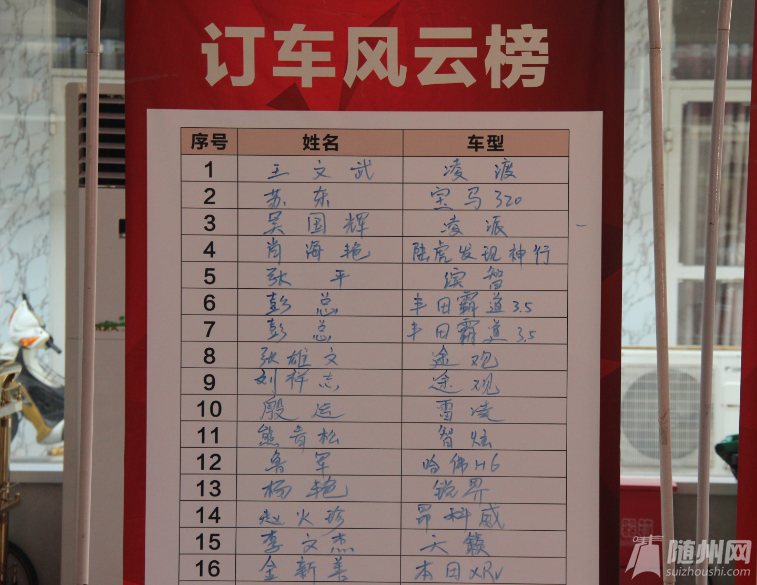 订车风云榜
序号 姓名 车型
1 王文武 凌渡
2 苏东 宝马320
3 吴国辉 凌派
4 肖海艳 陆虎发现神行
5 张平 缤智
6 彭总 丰田霸道3.5
7 彭总 丰田霸道3.5
8 张雄文 途观
9 刘祥志 途观
10 殷运 雷凌
11 熊青松 智炫
12 鲁军 哈佛H6
13 杨艳 锐界
14 赵火珍 昂科威
15 李文杰 天籁
16 金新善 本田XRv
随州网
suizhoushi.com